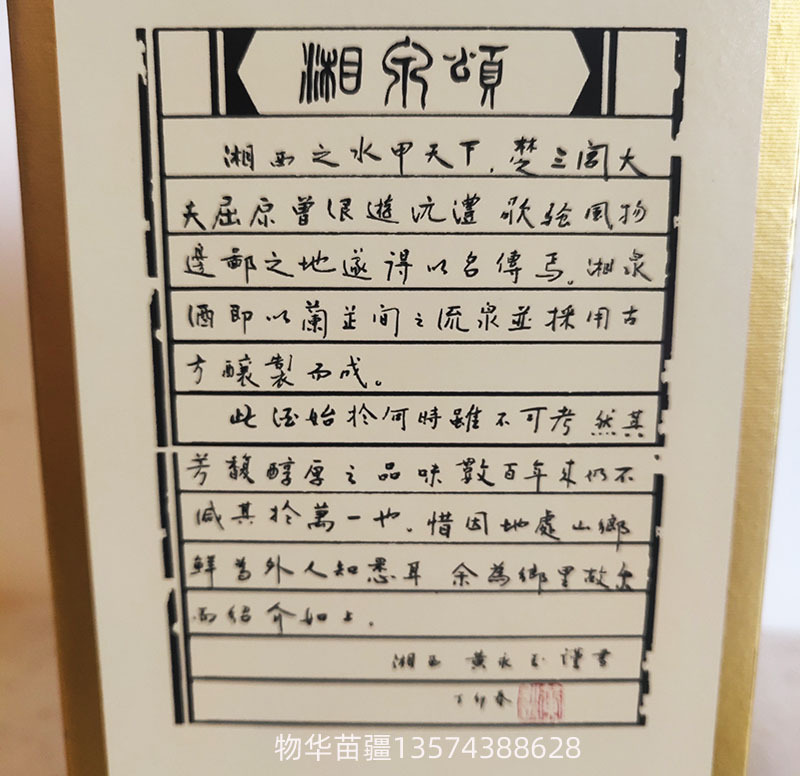 湘泉頌
湘西之水甲天下，楚三閭大
夫屈原曾浪遊沅澧歌繪風物
邊鄙之地遂得以名傳焉。湘泉
酒即以蘭芷间之流泉並採用古
方釀製而成。
此酒始於何時雖不可考然其
芳馥醇厚之品味數百年来仍不
减其於萬一也。惜因地處山鄉
鮮為外人知悉耳 余為鄉里故
而绍介如上。
湘西 黄永玉謹書
丁卯春
物华苗疆13574388628